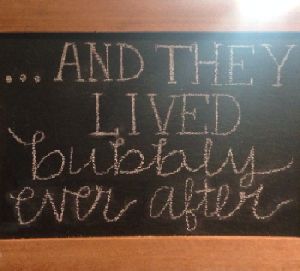 ... AND THEY
LIVED
bubbly
ever after